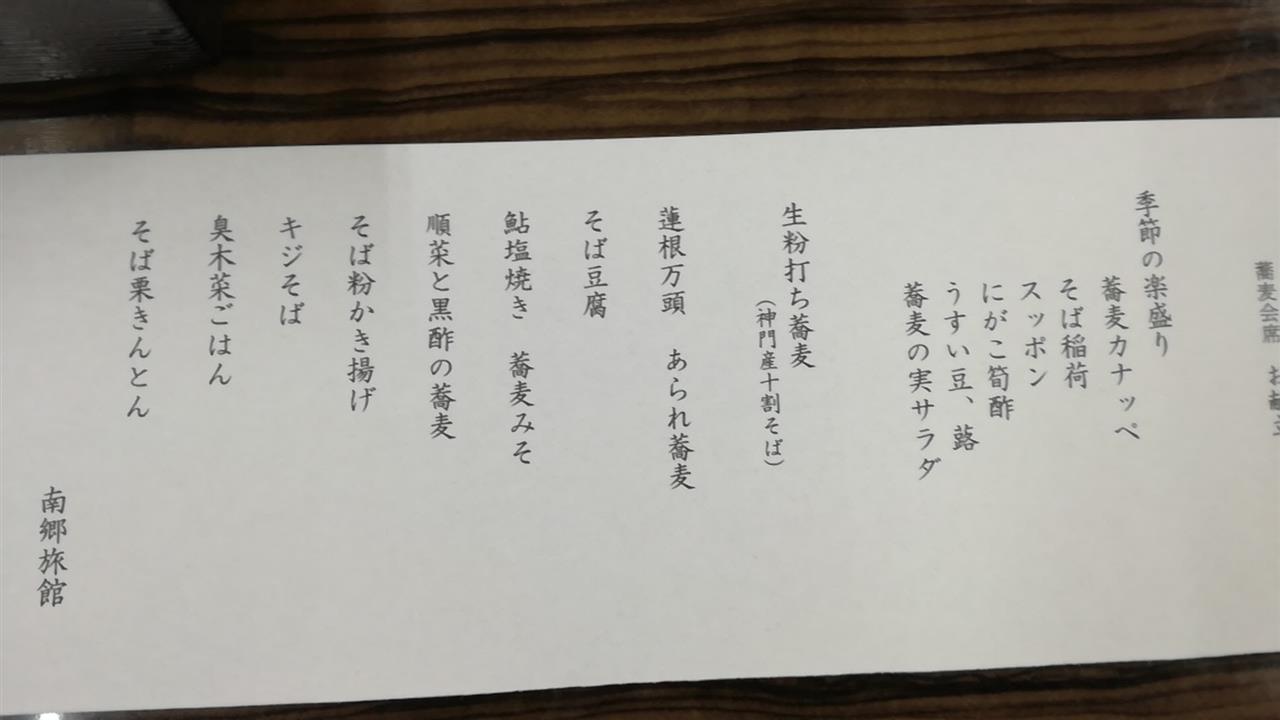 蕎麦会席 お献立
季節の楽盛り
蕎麦カナッペ
そば稲荷
スッポン
にがこ筍酢
うすい豆、蕗
蕎麦の実サラダ
生粉打ち蕎麦
(神門産十割そば)
蓮根万頭 あられ蕎麦
そば豆腐
鮎塩焼き 蕎麦みそ
順菜と黒酢の蕎麦
そば粉かき揚げ
キジそば
臭木菜ごはん
そば栗きんとん
南郷旅館